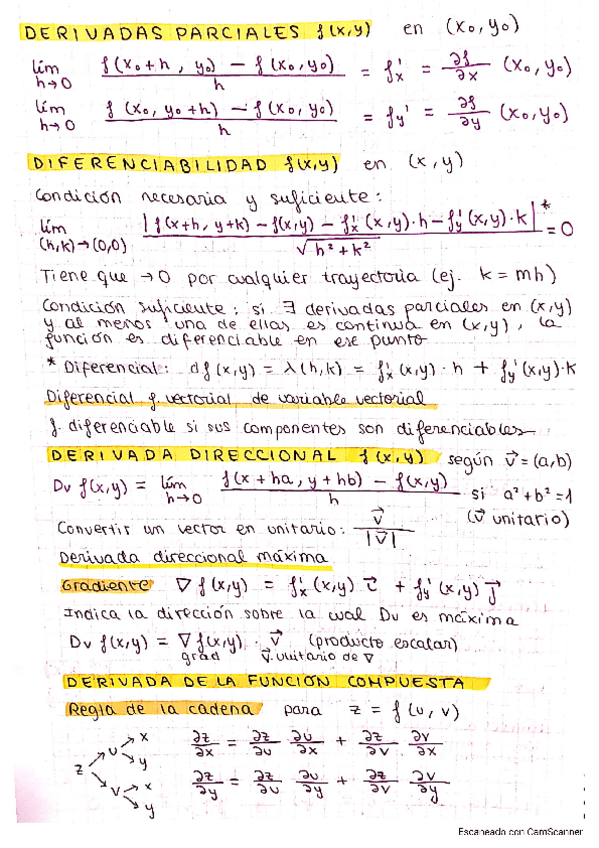 DERIVADAS PARCIALES f(x,y) en (x₀, y₀)
lím h→0 f(x₀+h, y₀) - f(x₀, y₀) / h = f'x = ∂f/∂x (x₀, y₀)
lím h→0 f(x₀, y₀+h) - f(x₀, y₀) / h = fy' = ∂f/∂y (x₀, y₀)
DIFERENCIABILIDAD f(x,y) en (x, y)
Condición necesaria y suficiente:
lím (h,k)→(0,0) |f(x+h, y+k) - f(x,y) - f'x(x,y)·h - f'y(x,y)·k|* / √h²+k² = 0
Tiene que →0 por cualquier trayectoria (ej. k = mh)
Condición suficiente: si ∃ derivadas parciales en (x,y)
y al menos una de ellas es continua en (x,y), la
función es diferenciable en ese punto
* Diferencial: df(x,y) = λ(h,k) = f'x(x,y)·h + fy'(x,y)·k
Diferencial f. vectorial de variable vectorial
f. diferenciable si sus componentes son diferenciables
DERIVADA DIRECCIONAL f(x,y) según v⃗=(a,b)
Dv f(x,y) = lím h→0 f(x+ha, y+hb) - f(x,y) / h si a²+b²=1
(v⃗ unitario)
Convertir un vector en unitario: v⃗ / |v⃗|
Derivada direccional máxima
Gradiente ∇f(x,y) = f'x(x,y) i⃗ + fy'(x,y) j⃗
Indica la dirección sobre la cual Dv es máxima
Dv f(x,y) = ∇f(x,y) · v⃗ (producto escalar)
grad v⃗.unitario de ∇
DERIVADA DE LA FUNCIÓN COMPUESTA
Regla de la cadena para z = f(u,v)
z → u → x, y ∂z/∂x = ∂z/∂u ∂u/∂x + ∂z/∂v · ∂v/∂x
z → v → x, y ∂z/∂y = ∂z/∂u ∂u/∂y + ∂z/∂v ∂v/∂y
Escaneado con CamScanner